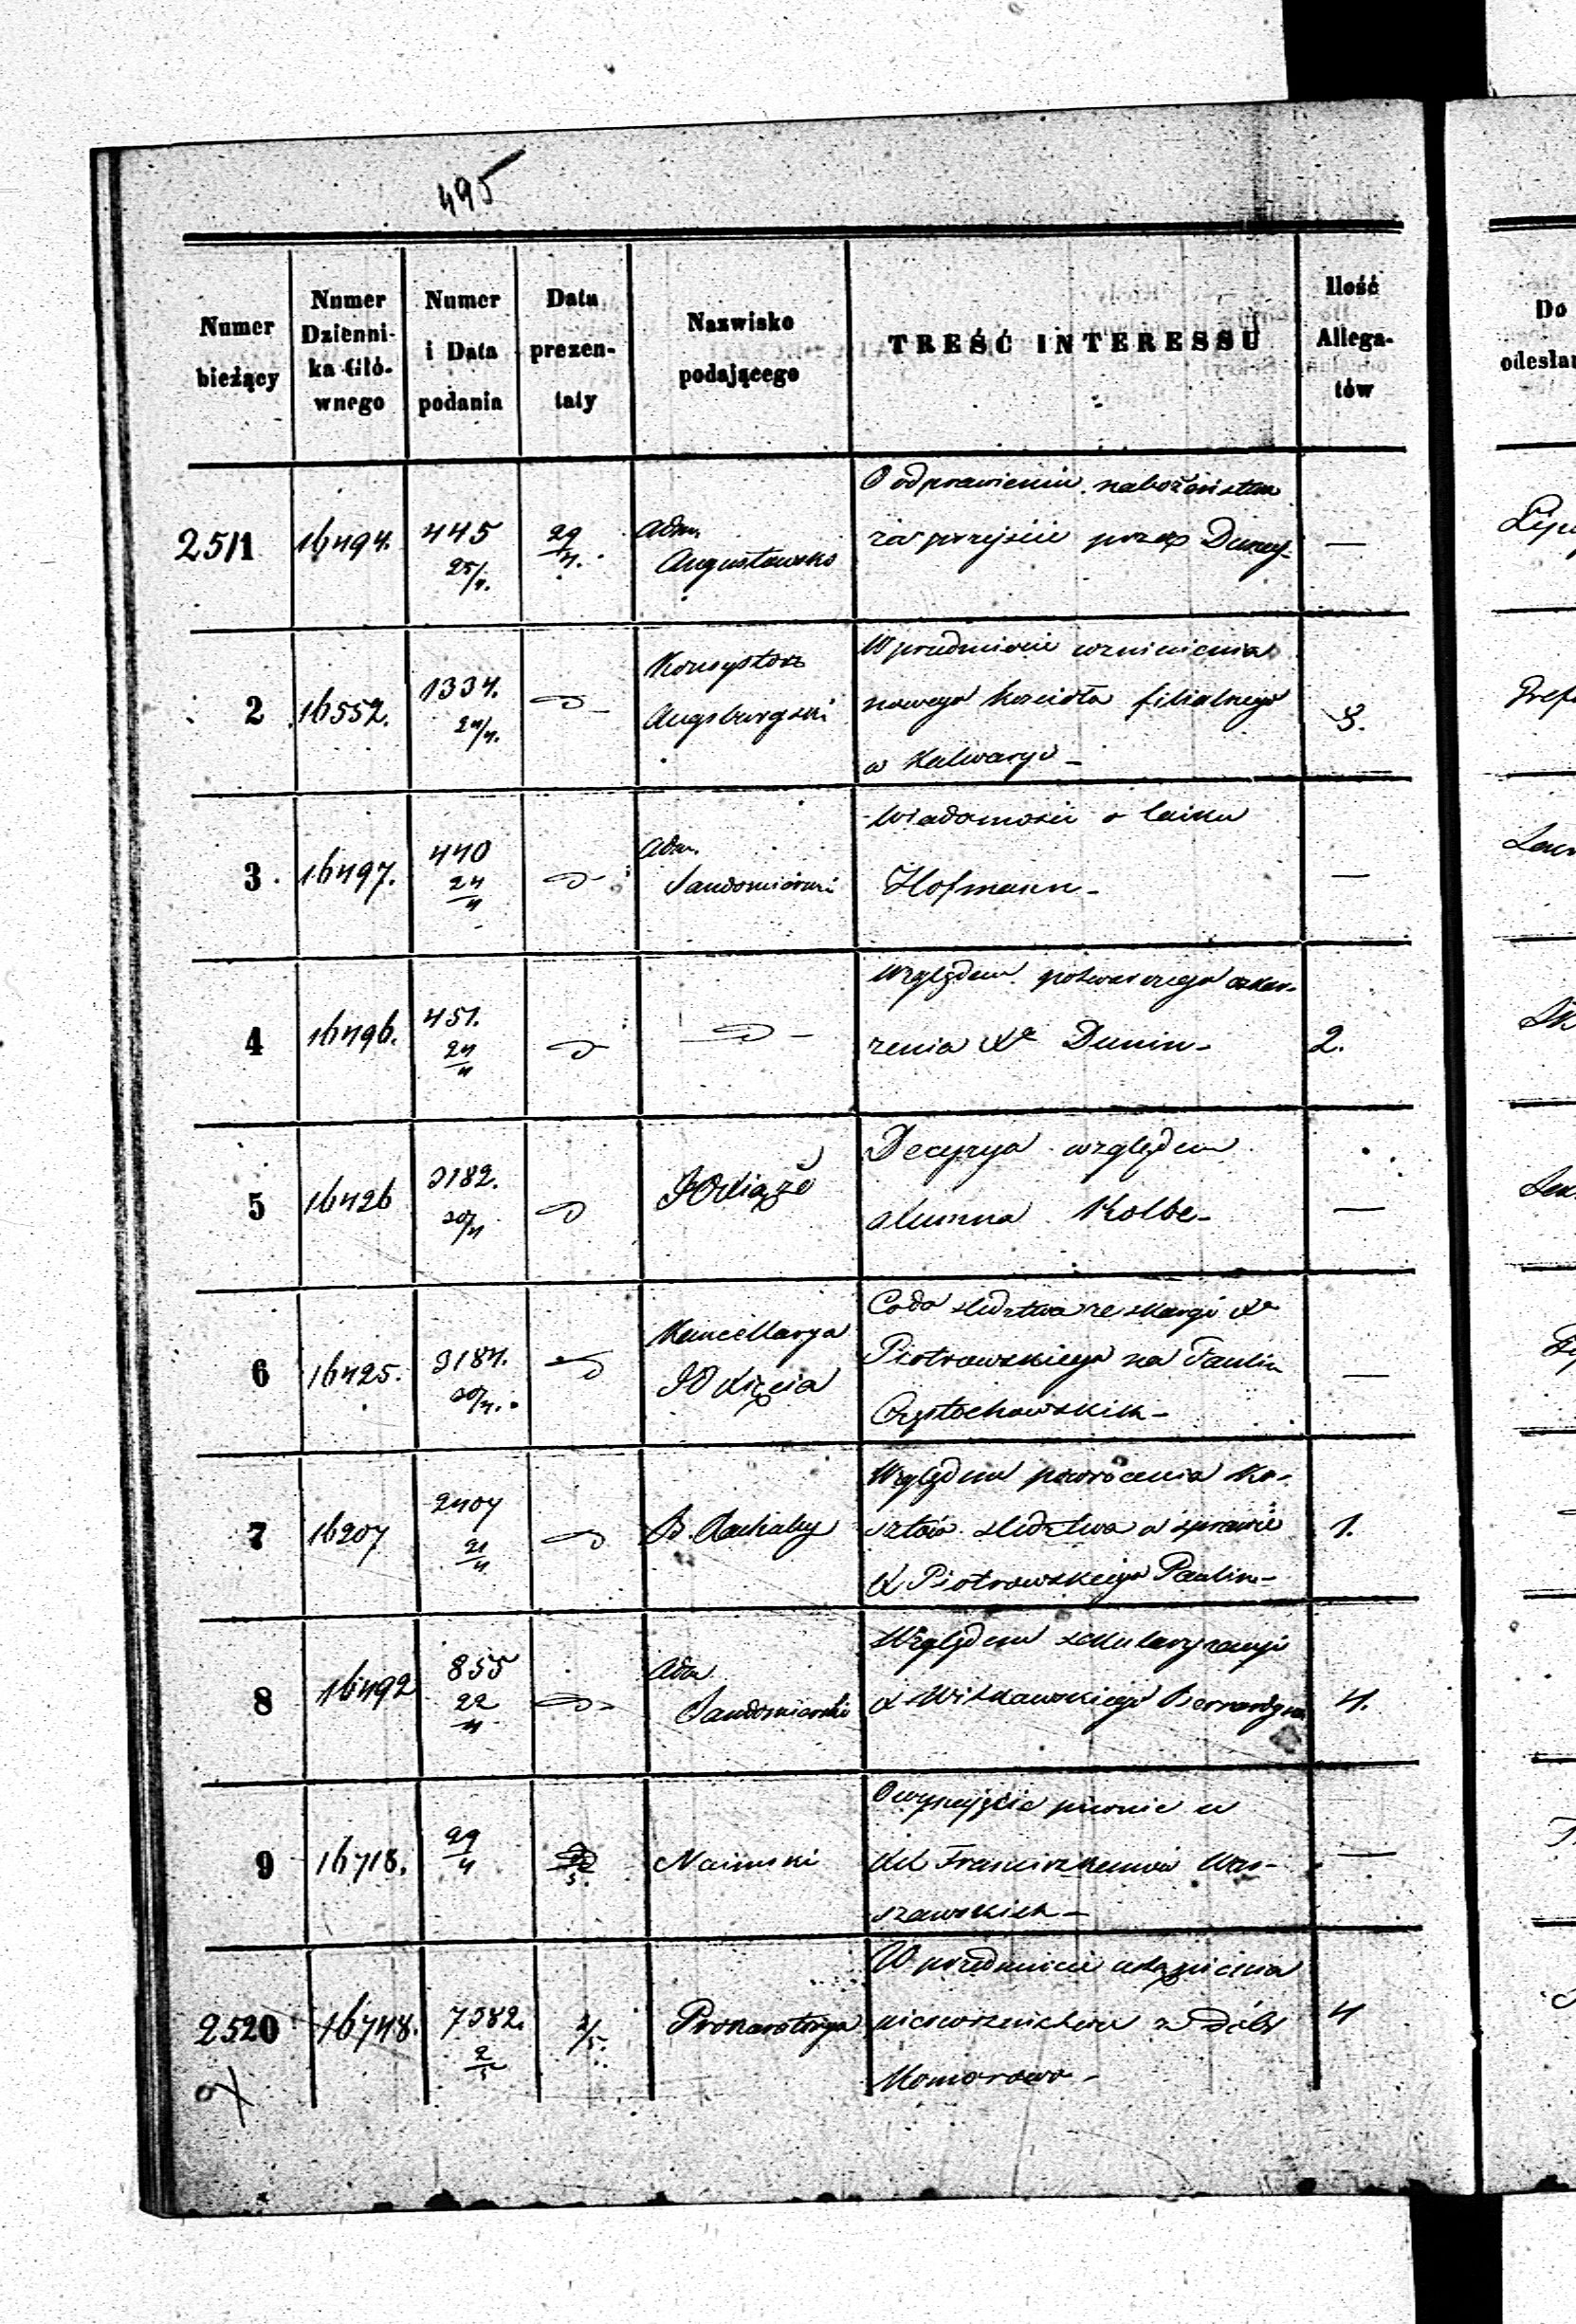 495
Numer bieżący
Numer Dzienni-ka Głó-wnego
Numer i Data podania
Data prezen-taty
Nazwisko podającego
TREŚĆ INTERESSU
Ilość Allega-tów
Do odesłan
2511 16494. 445 25/4. 29/4. Adm. Augustowsko
O odprawieniu nabożeństwa
za przejście przez Dunay- —
2 16552. 1334. 24/4. Konsystorz Augsburgski
W przedmiocie wzniesienia
nowego kościoła filialnego
w Kalwaryi - 3.
3 16497. 440 24/4 Adm. Sandomierski
Wiadomości o laiku
Hofmann - —
4 16496. 451. 24/4
Względem potwarczego oskar-
żenia Xa Dunin - 2.
5 16426 3182. 20/4 JO Xiąże
Decyzya względem
alumna Kolbe - —
6 16425. 3184. 20/4. Kancellarya JO Xięcia
Co do śledztwa ze skargi Xa
Piotrowskiego na Paulin
Częstochowskich - —
7 16207 2404 21/4
Względem powrócenia ko-
sztów śledztwa w sprawie
X Piotrowskiego Paulin - 1.
8 16492 855 22/4 Adm Sandomierski
Względem sekularyzacyi
X Witkawskiego Bernardyna 4.
9 16718. 29/4 Naimski
piwnic u
XX Franciszkanów War-
szawskich - —
2520 16748. 7582. 2/5 2/5. Prokuratorya
W przedmiocie ustąpienia
wieczwieństwa z dóbr
Komorowo - 4